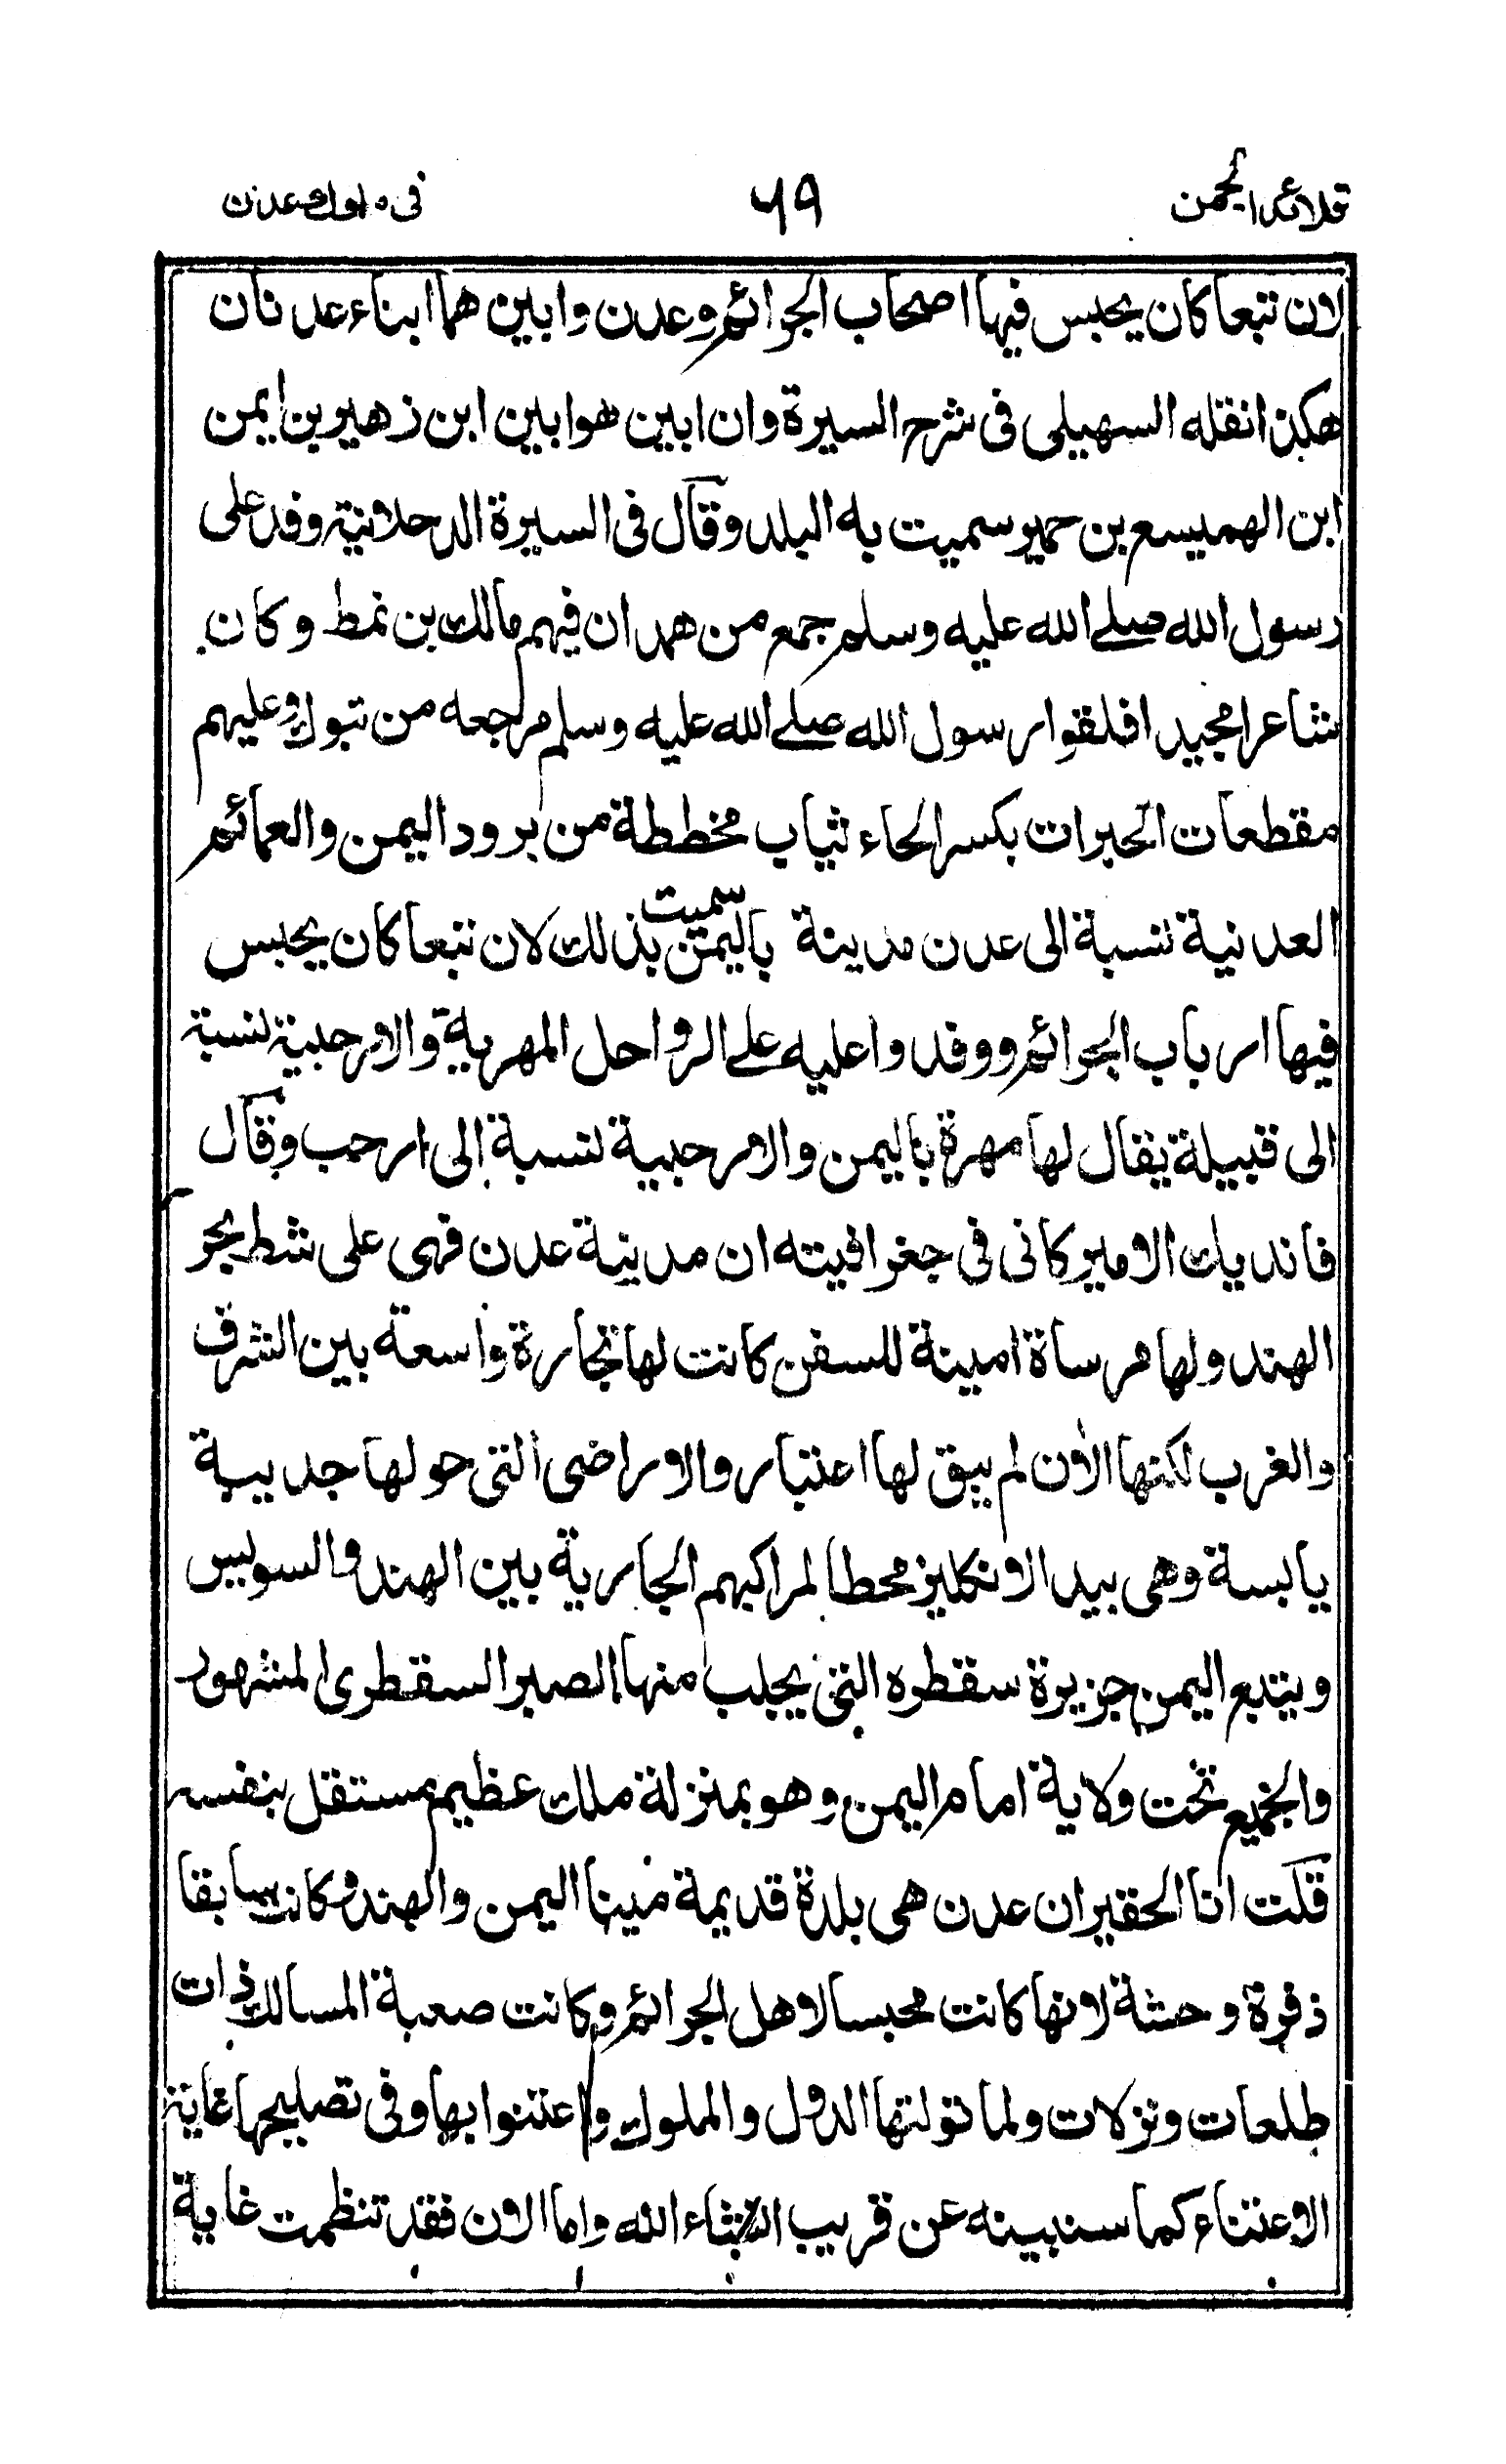 قلائد الجمن ٦٩ فى ملوك عدن
لان تبعا كان يحبس فيها اصحاب الجرائم وعدن وابين هما ابناء عدنان
هكذا نقله السهيلى فى شرح السيرة وان ابين هو ابين ابن زهير بن ايمن
ابن الهميسع بن حمير سميت به البلد وقال فى السيرة الدحلانية وفد على
رسول الله صلے الله عليه وسلم جمع من همدان فيهم مالك بن نمط وكان
شاعرا مجيدا فلقوا رسول الله صلے الله عليه وسلم مرجعه من تبوك وعليهم
مقطعات الحبرات بكسر الحاء ثياب مخططة من برود اليمن والعمائم
العدنية نسبة الى عدن مدينة باليمن سميت بذلك لان تبعا كان يحبس
فيها ارباب الجرائم ووفدوا عليه علے الرواحل المهرية والارحبية نسبة
الى قبيلة يقال لها مهرة باليمن والارحبية نسبة إلى ارحب وقال
فانديك الاميركانى فى جغرافيته ان مدينة عدن فهى على شط بحر
الهند ولها مرساة امينة للسفن كانت لها تجارة واسعة بين الشرق
والغرب لكنها الأن لم يبق لها اعتبار والاراضى التى حولها جديبة
يابسة وهى بيد الانكليز محطا لمراكبهم الجارية بين الهند والسويس
ويتبع اليمن جزيرة سقطره التى يجلب منها الصبر السقطرى المشهور
والجميع تحت ولاية امام اليمن وهو بمنزلة ملك عظيم مستقل بنفسه
قلت انا الحقير ان عدن هى بلدة قديمة مينا اليمن والهند وكانت سابقا
ذفرة وحشة لانها كانت محبسا لاهل الجرائم وكانت صعبة المسالك ذات
طلعات ونزلات ولما تولتها الدول والملوك واعتنوا بها وفى تصليحها غاية
الاعتناء كما سنبينه عن قريب انشاء الله واما الان فقد تنظمت غاية